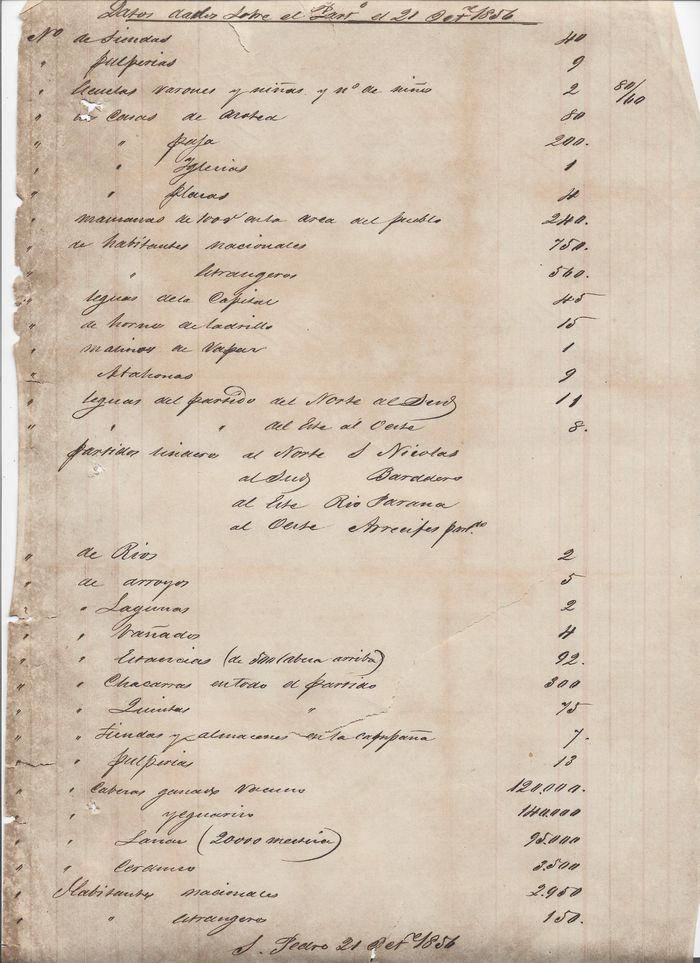 Datos dados sobre el Part.º el 21 Oct.e 1856
Nº de Tiendas 40
" pulperias 9
" Escuelas varones y niñas y nº de niños 2 80/60
" de Casas de azotea 80
" " paja 200.
" " Yglesias 1
" " plazas 4
" manzanas de 100 v. en la area del pueblo 240.
" de habitantes nacionales 750.
" " Estrangeros 560.
" leguas dela Capital 45
" de hornos de ladrillo 15
" molinos de Vapor 1
" Atahonas 9
" leguas del partido del Norte al Sud 11
" " " del Este al Oeste 8.
partidos linderos al Norte S Nicolas
al Sud Baradero
al Este Rio Parana
al Oeste Arrecifes part.do
" de Rios 2
" de arroyos 5
" " Lagunas 2
" " Vañados 4
" " Estancias (de 500 Cabezas arriba) 92.
" " Chacarras en todo el partido 300
" " Quintas " 75
" " Tiendas y almacenes en la campaña 7.
" " pulperias 13
" " Cabezas ganado Vacuno 120.000.
" " yeguarizo 140.000
" " Lanar (20000 mestiza) 95.000
" " Cerduno 3.500
" Habitantes nacionales 2.950
" " estrangeros 150.
S. Pedro 21 Oct.e 1856